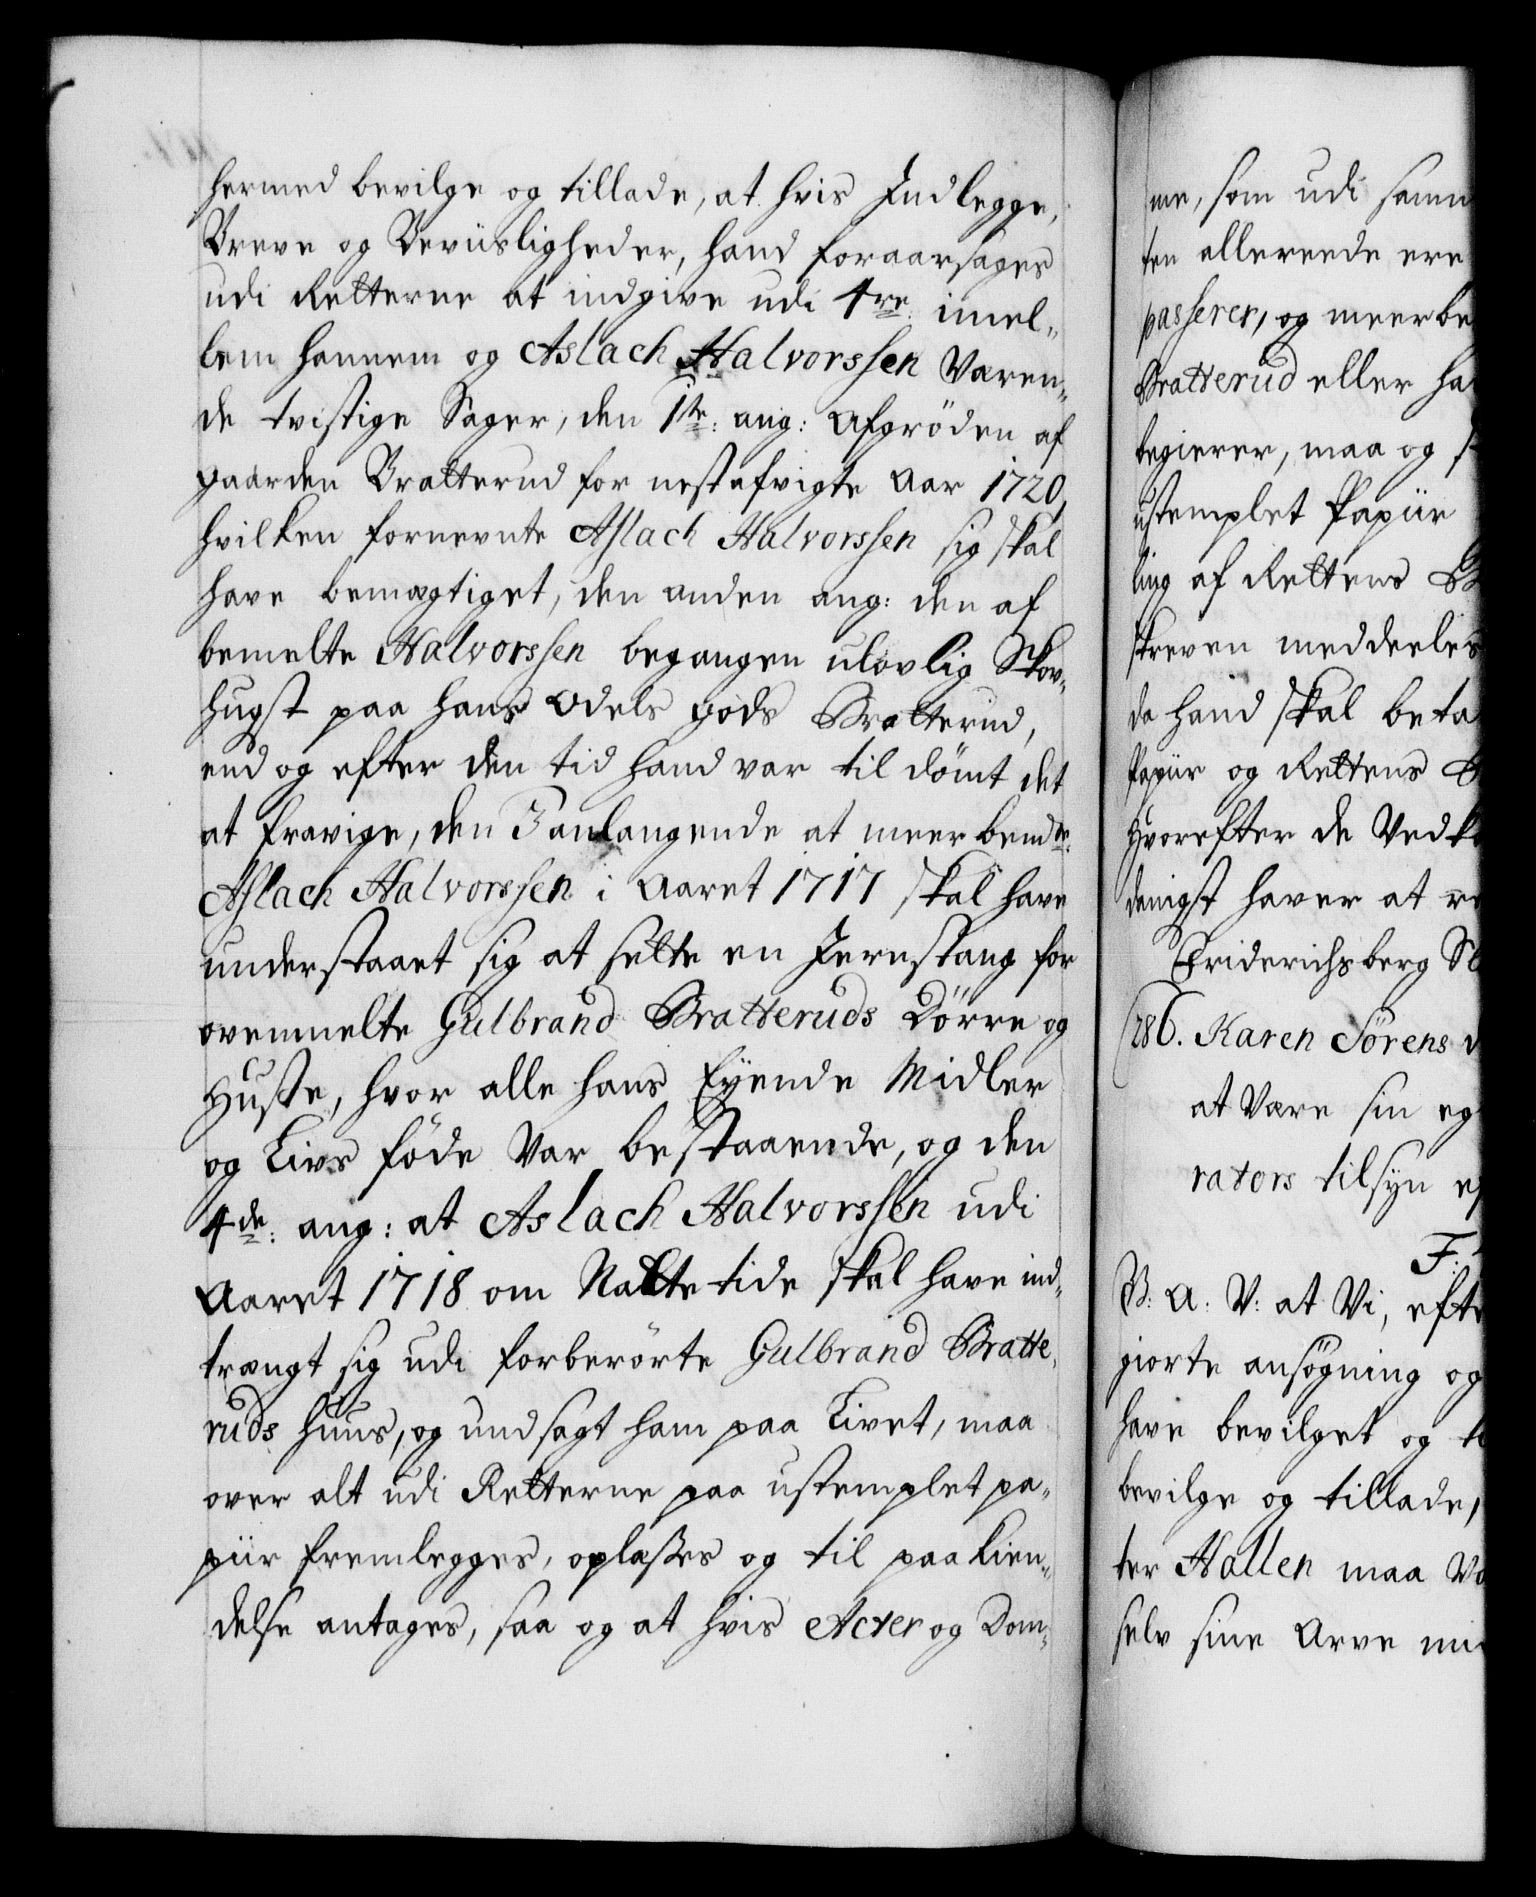 hermed bevilge og tillade, at hvis Indlegge,
Breve og Beviisligheder, hand foraarsages
udi Retterne at indgive udi 4re: imel¬
lem hannem og Aslach Halvorssen Væren¬
de tvistige Sager, den 1te: ang: Afgröden af
gaarden Bratterud for nestafvigte Aar 1720,
hvilken fornevnte Aslach Halvorssen sig skal
have bemægtiget, den anden ang: den af
bemelte Halvorssen begangen ulovlig Skov¬
hugst paa hans Odels gods Bratterud,
end og efter den tid hand var til dömt det
at fravige, den 3 anlangende at meerbemte:
Aslach Halvorssen i Aaret 1717 skal have
understaaet sig at sette en Jernstang for
ovenmelte Gulbrand Bratteruds Dörre og
Huse, hvor alle hans Eyende Midler
og Livs föde var bestaaende, og den
4de: ang: at Aslach Halvorssen udi
Aaret 1718 om Natte tide skal have ind¬
trængt sig udi forberörte Gulbrand Bratte¬
ruds Huus, og undsagt ham paa Livet, maa
over alt udi Retterne paa ustemplet pa¬
piir fremlegges, oplæses og til paakien¬
delse antages, saa og at hvis Acter og Dom¬
me, som udi samm
ten allereede ere
passerer, og meerbe
Bratterud eller ha
begierer, maa og s
ustemplet Papiir
ling af Rettens
skreven meddeeles
da hand skal beta
Papiir og Rettens
Hvorefter de Vedk
danigst haver at re
Friderichsberg Sl
286. Karen Sörens d
at være sin eg
rators tilsyn ef
F:
V: A: V: at Vi, efte
giorte ansögning og
have bevilget og t
bevilge og tillade,
ter Hallen maa Væ
selv sine Arve mi